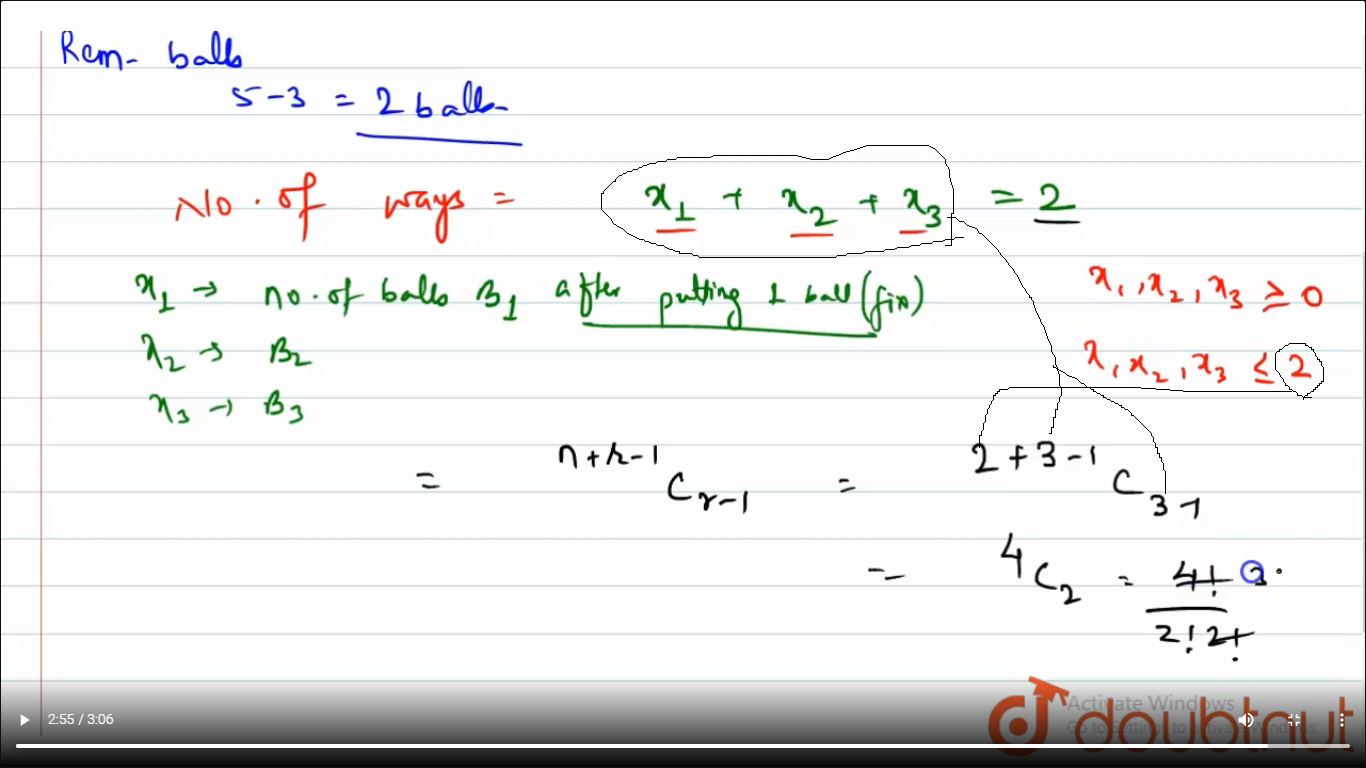 Rem- balls
5-3 = 2 balls-
No. of ways = x₁ + x₂ + x₃ = 2
x₁ → no. of balls B₁ after putting 1 ball (fix)
x₁, x₂, x₃ ≥ 0
x₂ → B₂
x₁ x₂, x₃ ≤ 2
x₃ → B₃
= ⁿ⁺ʳ⁻¹Cᵣ₋₁ = ²⁺³⁻¹C₃₋₁
= ⁴C₂ = 4! 3.
2! 2!
Activate Windows
Go to Settings to activate Windows.
doubtnut
2:55 / 3:06